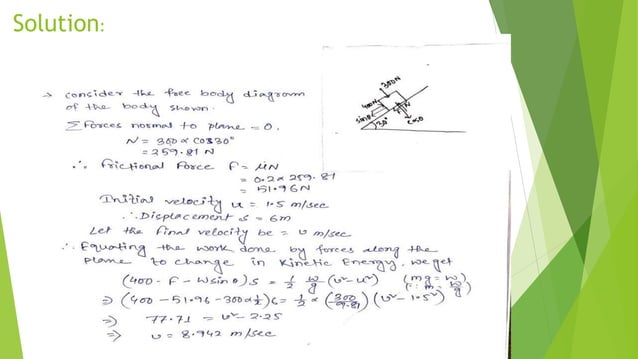 Solution:
→ Consider the free body diagram
of the body shown.
ΣForces normal to plane = 0.
N = 300 x cos30°
= 259.81 N
∴ frictional Force F = μN
= 0.2 x 259.81
= 51.96 N
Initial velocity u = 1.5 m/sec
∴ Displacement s = 6m
Let the final velocity be = v m/sec
∴ Equating the work done by forces along the
plane to change in Kinetic Energy, we get
(400 - F - W sin θ) s = 1/2 W/g (v² - u²) (mg = w) (∴ m = w/g)
⇒ (400 - 51.96 - 300 x 1/2) 6 = 1/2 x (300/9.81) (v² - 1.5²)
⇒ 77.71 = v² - 2.25
⇒ v = 8.942 m/sec
300N
400N
sinθ
30°
cosθ